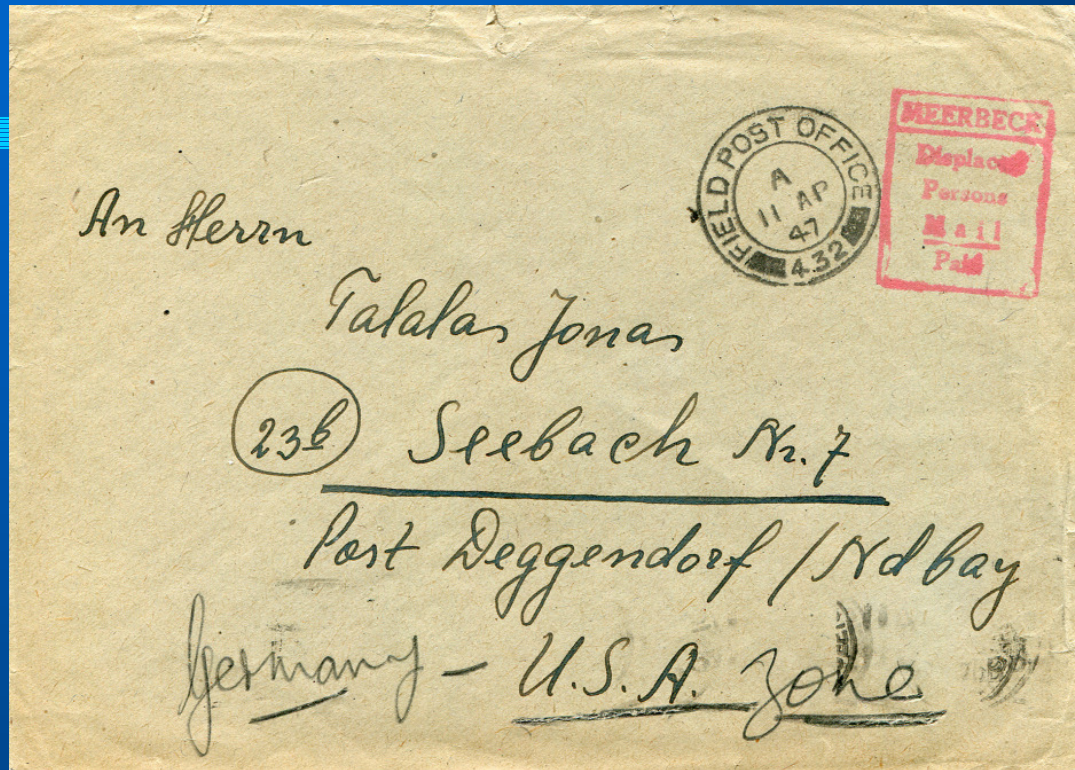 FIELD POST OFFICE
A
11 AP
47
432
MEERBECK
Displaced
Persons
Mail
Paid
An Herrn
Talalas Jonas
23b Seebach Nr. 7
Post Deggendorf / Ndbay
Germany - U.S.A. Zone